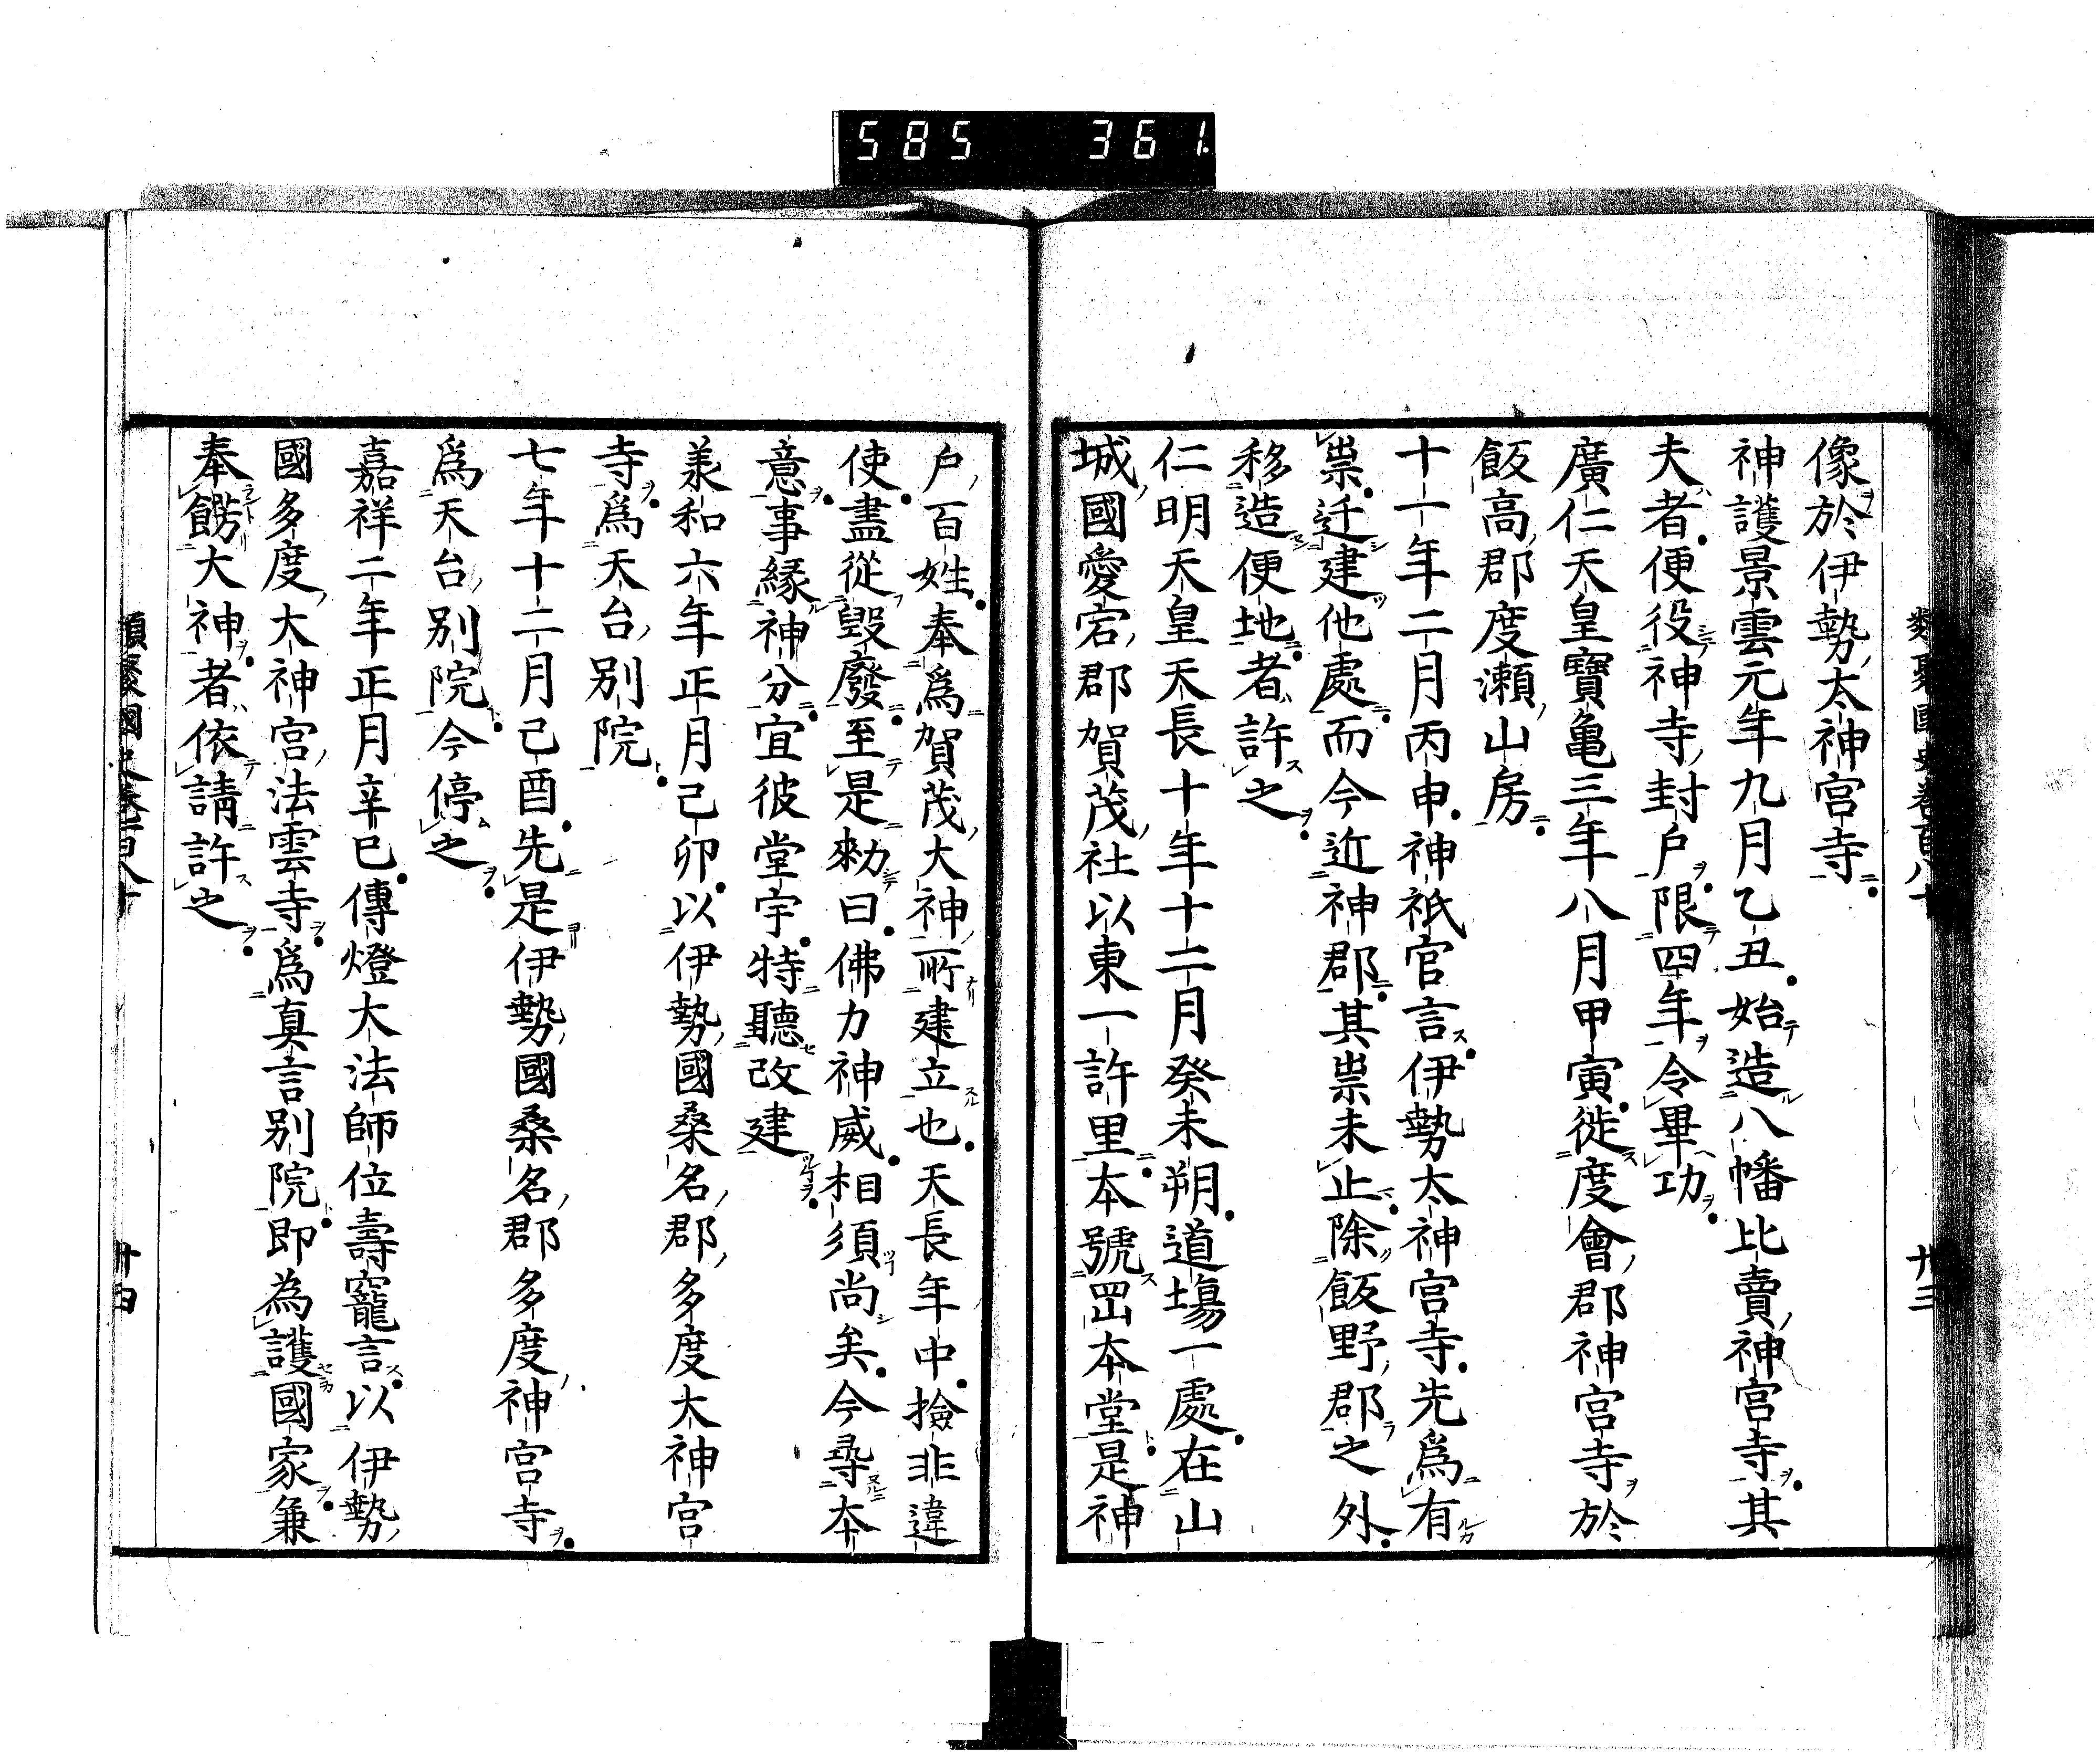 585 361
類聚國史卷百八十 廿三
像於伊勢太神宮寺
神護景雲元年九月乙丑始造八幡比賣神宮寺其
夫者便役神寺封戶限四年令畢功
廣仁天皇寶亀三年八月甲寅徙度會郡神宮寺於
飯高郡度瀬山房
十一年二月丙申神祇官言伊勢太神宮寺先爲有
祟迁建他處而今近神郡其祟未止除飯野郡之外
移造便地者許之
仁明天皇天長十年十二月癸未朔道塲一處在山
城國愛宕郡賀茂社以東一許里本號岡本堂是神
戶百姓奉爲賀茂大神所建立也天長年中撿非違
使盡從毀廢至是勑曰佛力神威相須尚矣今尋本
意事緣神分宜彼堂宇特聽改建
兼和六年正月己卯以伊勢國桑名郡多度大神宮
寺爲天台別院
七年十二月己酉先是伊勢國桑名郡多度神宮寺
爲天台別院今停之
嘉祥二年正月辛巳傳燈大法師位壽寵言以伊勢
國多度大神宮法雲寺爲真言別院即為護國家兼
奉餝大神者依請許之
類聚國史卷百八十 廿四